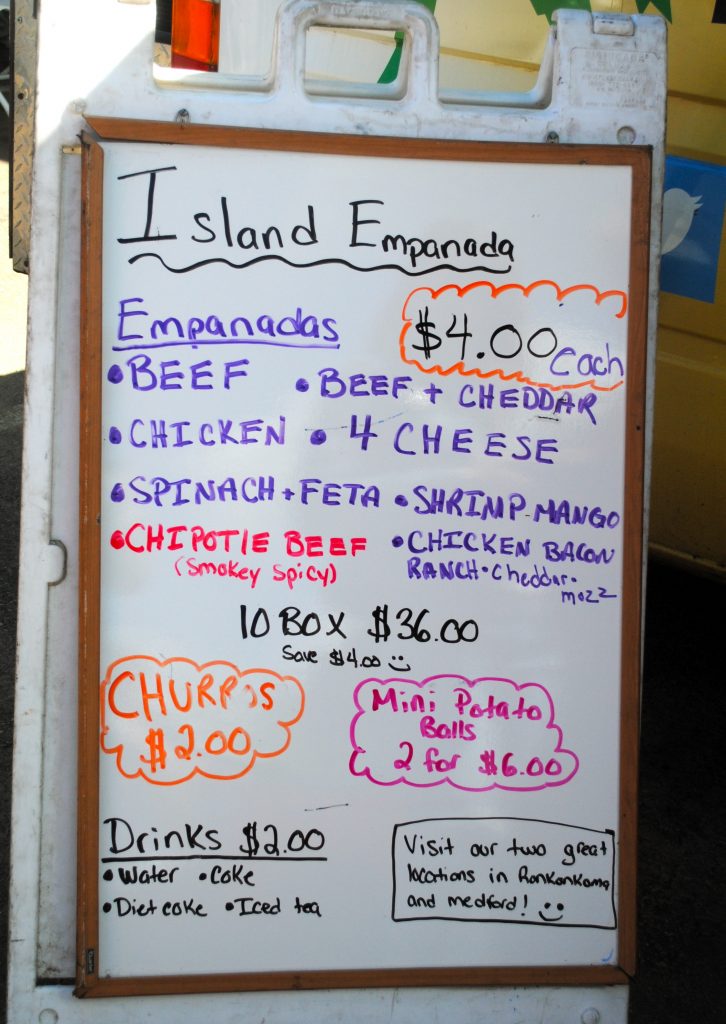 Island Empanada
Empanadas
$4.00 each
• BEEF
• BEEF + CHEDDAR
• CHICKEN
• 4 CHEESE
• SPINACH + FETA
• SHRIMP-MANGO
• CHIPOTlE BEEF
(Smokey Spicy)
• CHICKEN BACON
RANCH • Cheddar •
mozz
10 BOX $36.00
Save $4.00
CHURROS
$2.00
Mini Potato
Balls
2 for $6.00
Drinks $2.00
• Water • Coke
• Diet coke • Iced tea
Visit our two great
locations in Ronkonkoma
and medford!